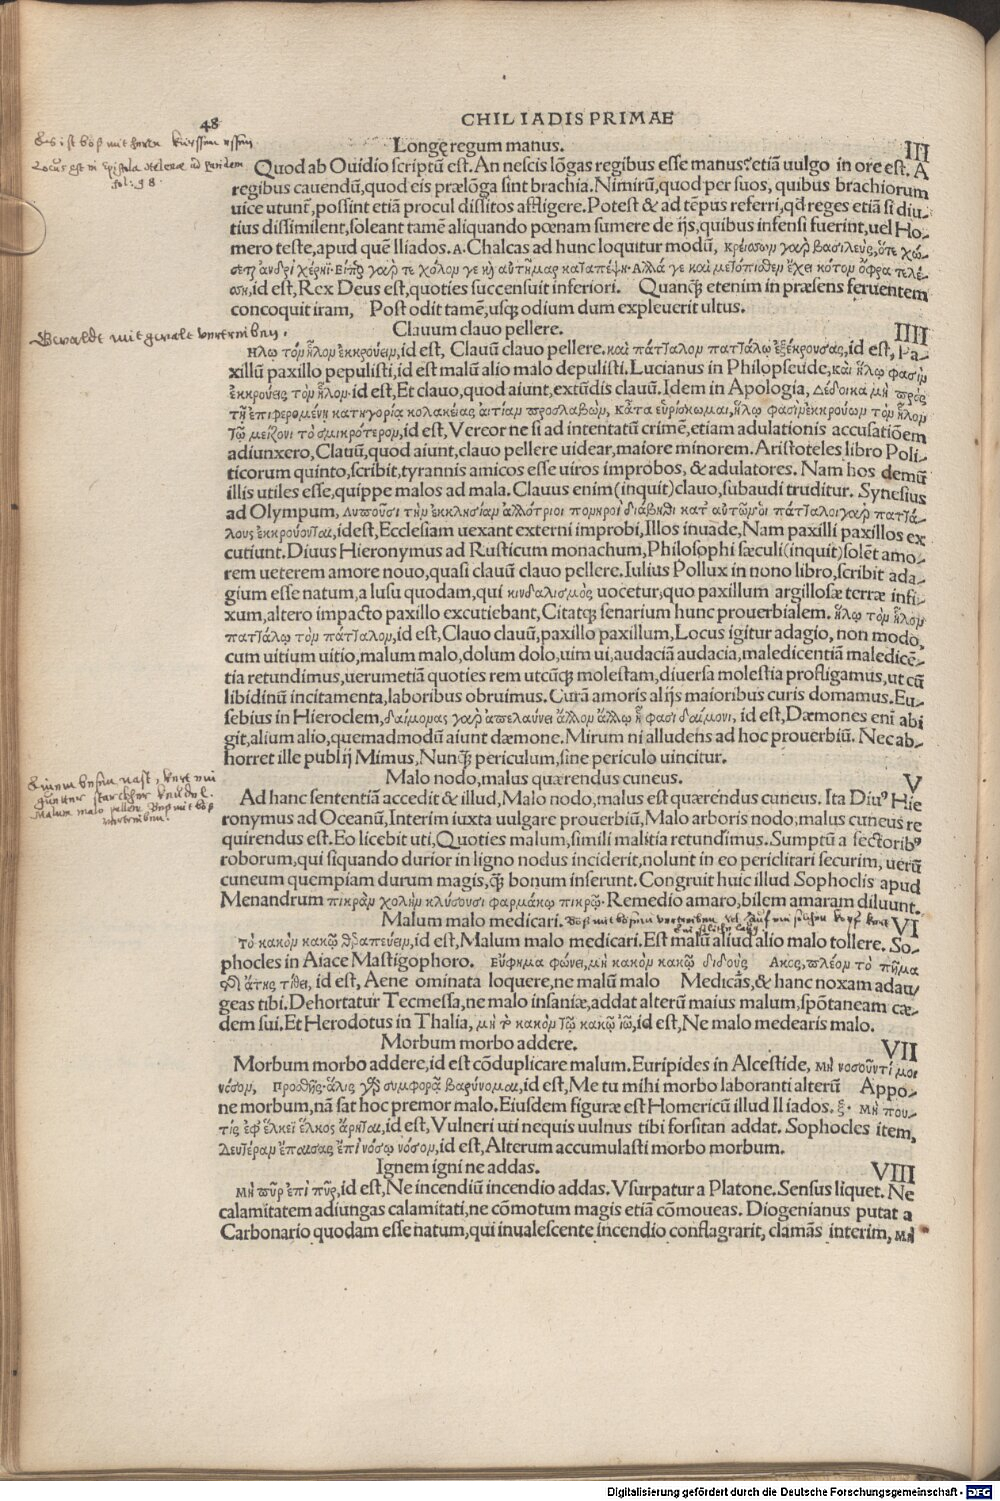 48
CHILIADIS PRIMAE
Es ist böß mit heren
Longę regum manus. III
Quod ab Ouidio scriptũ est. An nescis lõgas regibus esse manus? etiã uulgo in ore est. A
regibus cauendũ, quod eis prælõga sint brachia. Nimirũ, quod per suos, quibus brachiorum
uice utunt̃, possint etiã procul dissitos affligere. Potest & ad tẽpus referri, qđ reges etiã si diu-
tius dissimilent, soleant tamẽ aliquando pœnam sumere de ijs, quibus infensi fuerint, uel Ho-
mero teste, apud quẽ Iliados. A. Chalcas ad hunc loquitur modũ, κρείσσων γὰρ βασιλεὺς, ὅτε χώ-
σεται ἀνδρὶ χέρηϊ. Εἴπερ γάρ τε χόλον γε καὶ αὐτῆμαρ καταπέψῃ. Ἀλλά γε καὶ μετόπισθεν ἔχει κότον ὄφρα τελέ-
σῃ, id est, Rex Deus est, quoties succensuit inferiori. Quanq̃ etenim in præsens feruentem
concoquit iram, Post odit tamẽ, usq̃ odium dum expleuerit ultus.
Gewaldt mit gewalt vertreiben.
Clauum clauo pellere. IIII
Ηλῳ τὸν ἧλον ἐκκρούειν, id est, Clauũ clauo pellere. καὶ πάτταλον παττάλῳ ἐξέκρουσας, id est, Pa-
xillũ paxillo pepulisti, id est malũ alio malo depulisti. Lucianus in Philopseude, καὶ ἥλῳ φασὶν
ἐκκρούεις τὸν ἧλον. id est, Et clauo, quod aiunt, extũdis clauũ. Idem in Apologia, Δέδοικα μὴ πρὸς
τῇ ἐπιφερομένῃ κατηγορίᾳ κολακείας αἰτίαν προσλαβὼν, κᾆτα εὑρίσκωμαι, ἥλῳ φασὶν ἐκκρούων τὸν ἧλον
τῷ μείζονι τὸ σμικρότερον, id est, Vereor ne si ad intentatũ crimẽ, etiam adulationis accusatiõem
adiunxero, Clauũ, quod aiunt, clauo pellere uidear, maiore minorem. Aristoteles libro Poli-
ticorum quinto, scribit, tyrannis amicos esse uiros improbos, & adulatores. Nam hos demũ
illis utiles esse, quippe malos ad mala. Clauus enim (inquit) clauo, subaudi truditur. Synesius
ad Olympum, Λυποῦσι τὴν ἐκκλησίαν ἀλλότριοι πονηροὶ διάβηθι κατ αὐτῶν. οἱ πάτταλοι γὰρ παττά-
λους ἐκκρούονται, id est, Ecclesiam uexant externi improbi, Illos inuade, Nam paxilli paxillos ex
cutiunt. Diuus Hieronymus ad Rusticum monachum, Philosophi sæculi (inquit) solẽt amo-
rem ueterem amore nouo, quasi clauũ clauo pellere. Iulius Pollux in nono libro, scribit ada-
gium esse natum, a lusu quodam, qui κινδαλισμὸς uocetur, quo paxillum argillosæ terræ infi-
xum, altero impacto paxillo excutiebant, Citatq̃ senarium hunc prouerbialem. ἥλῳ τὸν ἧλον
παττάλῳ τὸν πάτταλον, id est, Clauo clauũ, paxillo paxillum, Locus igitur adagio, non modo,
cum uitium uitio, malum malo, dolum dolo, uim ui, audaciã audacia, maledicentiã maledicẽ-
tia retundimus, uerumetiã quoties rem utcũq̃ molestam, diuersa molestia profligamus, ut cũ
libidinũ incitamenta, laboribus obruimus. Curã amoris alijs maioribus curis domamus. Eu-
sebius in Hieroclem, δαίμονας γὰρ ἀπελαύνει ἄλλον ἄλλῳ ᾗ φασι δαίμονι, id est, Dæmones eni᷃ abi
git, alium alio, quemadmodũ aiunt dæmone. Mirum ni alludens ad hoc prouerbiũ. Nec ab-
horret ille publij Mimus, Nunq̃ periculum, sine periculo uincitur.
Malo nodo, malus quærendus cuneus. V
Malum malo pellere. Böß mit böß
vertreiben.
Ad hanc sententiã accedit & illud, Malo nodo, malus est quærendus cuneus. Ita Diuꝰ Hie
ronymus ad Oceanũ, Interim iuxta uulgare prouerbiũ, Malo arboris nodo, malus cuneus re
quirendus est. Eo licebit uti, Quoties malum, simili malitia retundimus. Sumptũ a sectoribꝰ
roborum, qui siquando durior in ligno nodus inciderit, nolunt in eo periclitari securim, uerũ
cuneum quempiam durum magis, q̃ bonum inserunt. Congruit huic illud Sophoclis apud
Menandrum πικρὰν χολὴν κλύσουσι φαρμάκῳ πικρῷ. Remedio amaro, bilem amaram diluunt.
Malum malo medicari. VI
Τὸ κακὸν κακῷ θεραπεύειν, id est, Malum malo medicari. Est malũ aliud alio malo tollere. So-
phocles in Aiace Mastigophoro. Εὔφημα φώνει, μὴ κακὸν κακῷ διδοὺς Ακος, πλέον τὸ πῆμα
τῆς ἄτης τίθει, id est, Aene ominata loquere, ne malũ malo Medicãs, & hanc noxam adau-
geas tibi. Dehortatur Tecmessa, ne malo insaniæ, addat alterũ maius malum, spõtaneam cæ-
dem sui. Et Herodotus in Thalia, μὴ τὸ κακὸν τῷ κακῷ ἰῶ, id est, Ne malo medearis malo.
Morbum morbo addere. VII
Morbum morbo addere, id est cõduplicare malum. Euripides in Alcestide, μὴ νοσοῦντί μοι
νόσον, Προσθῇς. ἅλις γὰρ συμφορᾷ βαρύνομαι, id est, Me tu mihi morbo laboranti alterũ Appo-
ne morbum, nã sat hoc premor malo. Eiusdem figuræ est Homericũ illud Iliados. ξ. Μή που-
τίς ἐφ ἕλκεϊ ἕλκος ἄρηται, id est, Vulneri uti nequis uulnus tibi forsitan addat. Sophocles item,
Δευτέραν ἔπαισας ἐπὶ νόσῳ νόσον, id est, Alterum accumulasti morbo morbum.
Ignem igni ne addas. VIII
Μὴ πῦρ ἐπὶ πῦρ, id est, Ne incendiũ incendio addas. Vsurpatur a Platone. Sensus liquet. Ne
calamitatem adiungas calamitati, ne cõmotum magis etiã cõmoueas. Diogenianus putat a
Carbonario quodam esse natum, qui inualescente incendio conflagrarit, clamãs interim, μὴ
Digitalisierung gefördert durch die Deutsche Forschungsgemeinschaft - DFG